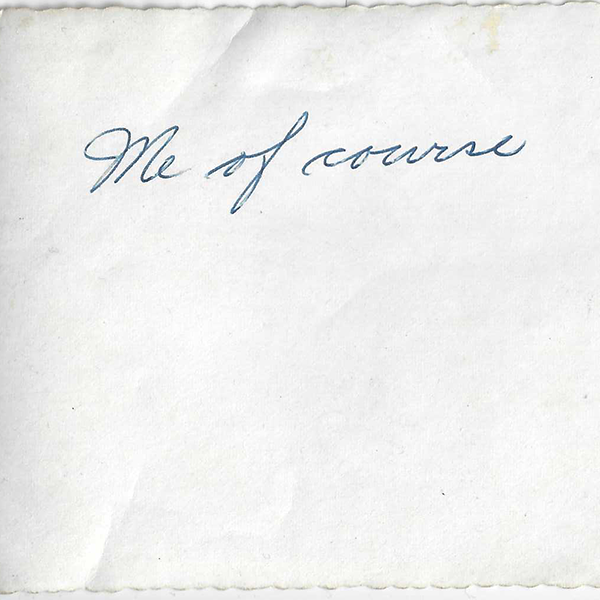 Me of course